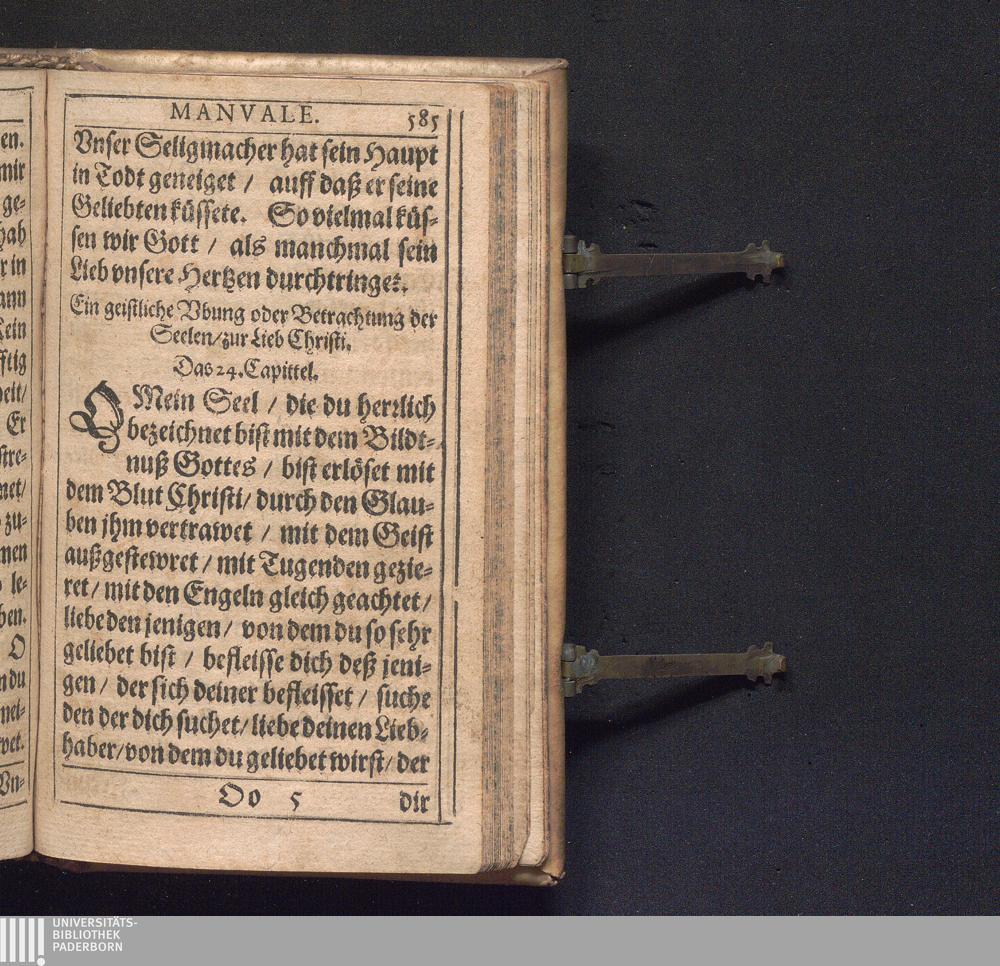 en.
mir
ge-
hab
r in
ann
ein
fftig
heit/
Er
stre-
net/
zu-
men
le-
ben.
O
n du
mei-
wet.
Vn-
MANVALE. 585
Vnser Seligmacher hat sein Haupt
in Todt geneiget / auff daß er seine
Geliebten küssete. So vielmal küs-
sen wir Gott / als manchmal sein
Lieb vnsere Hertzen durchtringet.
Ein geistliche Vbung oder Betrachtung der
Seelen/zur Lieb Christi.
Das 24. Capittel.
O Mein Seel / die du herrlich
bezeichnet bist mit dem Bildt-
nuß Gottes / bist erlöset mit
dem Blut Christi/ durch den Glau-
ben jhm vertrawet / mit dem Geist
außgestewret / mit Tugenden gezie-
ret / mit den Engeln gleich geachtet /
liebe den jenigen / von dem du so sehr
geliebet bist / befleisse dich deß jeni-
gen / der sich deiner befleisset / suche
den der dich suchet / liebe deinen Lieb-
haber/von dem du geliebet wirst/ der
Oo 5 dir
UNIVERSITÄTS-
BIBLIOTHEK
PADERBORN